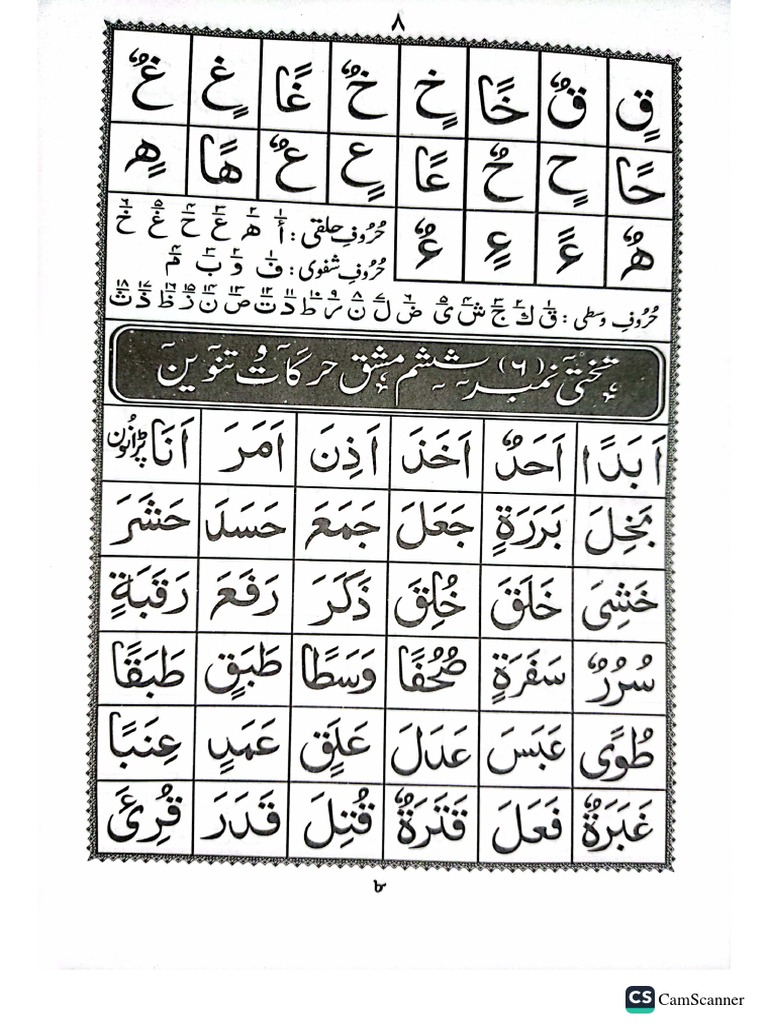 ٨
قٍ قٌ خًا خٍ خٌ غًا غٍ غٌ
حًا حٍ حٌ عًا عٍ عٌ هًا هٍ
هٌ ءً ءٍ ءٌ
حُروفِ حلقی: أ ھ ع ح غ خ
حُروفِ شفوی: ف و ب م
حُروفِ وسطی: ق ك ج ش ی ض ل ن ر ط د ت ص ن ز ظ ذ ث
تختی نمبر (٦) ششم مشق حرکات و تنوین
اَبَدًا اَحَدٌ اَخَذَ اَذِنَ اَمَرَ اَنَا
بَخِلَ بَرَرَةٍ جَعَلَ جَمَعَ حَسَدَ حَشَرَ
خَشِیَ خَلَقَ خُلِقَ ذَكَرَ رَفَعَ رَقَبَةٍ
سُرُرٌ سَفَرَةٍ صُحُفًا وَسَطًا طَبَقٍ طَبَقًا
طُوًی عَبَسَ عَدَلَ عَلَقٍ عَمَدٍ عِنَبًا
غَبَرَةٌ فَعَلَ قَتَرَةٌ قُتِلَ قَدَرَ قُرِئَ
٨
CS CamScanner